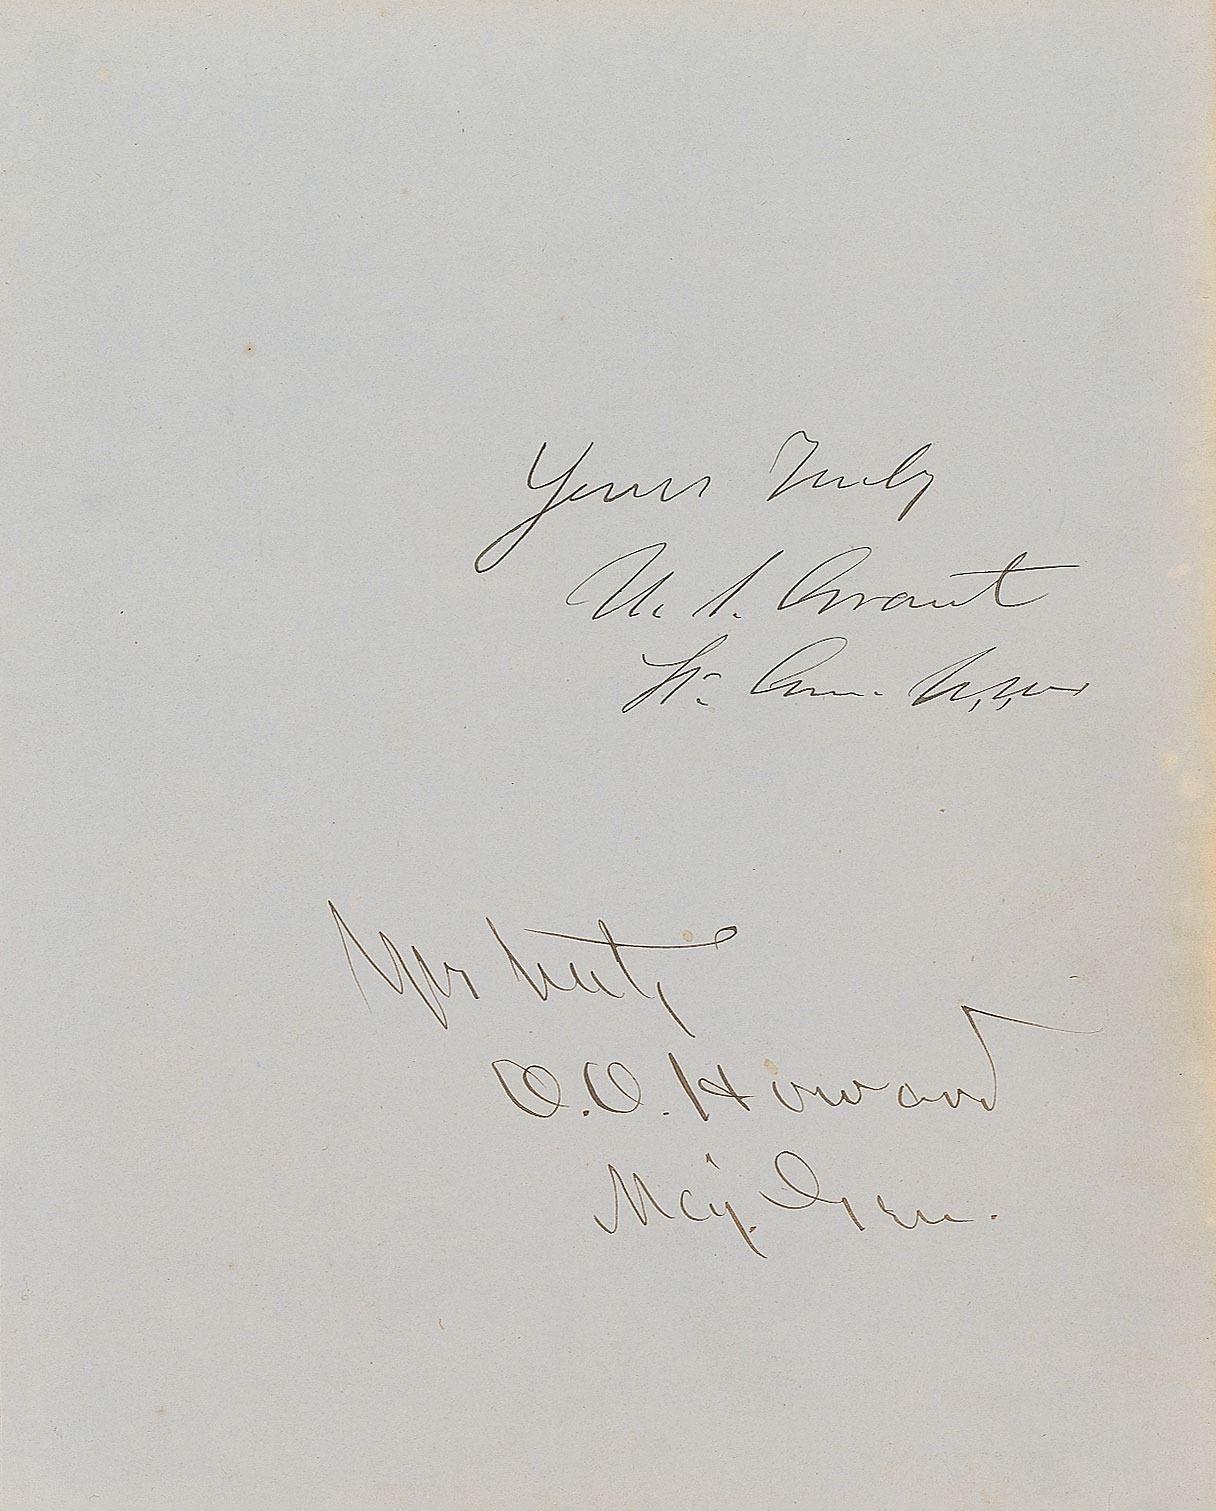 Yours Truly
U. S. Grant
Lt. Gen. U.S.A.
Yrs truly
O.O. Howard
Maj. Gen.